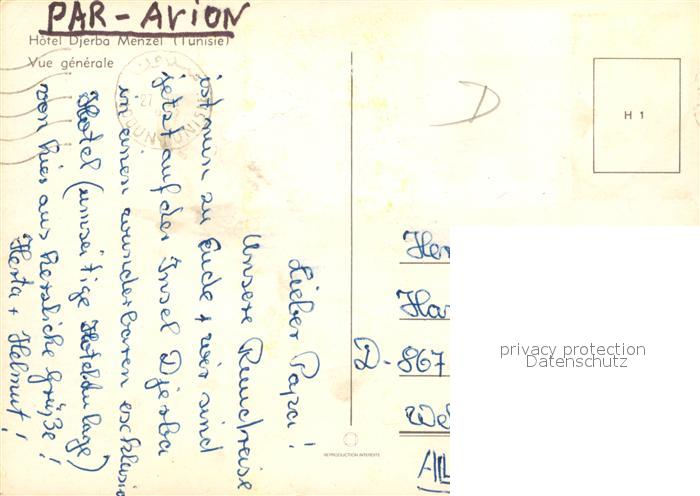 PAR-AVION
Hôtel Djerba Menzel (Tunisie)
Vue générale
D
H 1
Lieber Papa!
Unsere Rundreise
ist nun zu Ende + wir sind
jetzt auf der Insel Djerba
in einem wunderbaren exklusiv
Hotel (umseitige Hotelanlage)
von hier aus herzliche Grüße!
Herta + Helmut!
Her
Ha
D-867
We
All
privacy protection
Datenschutz
REPRODUCTION INTERDITE